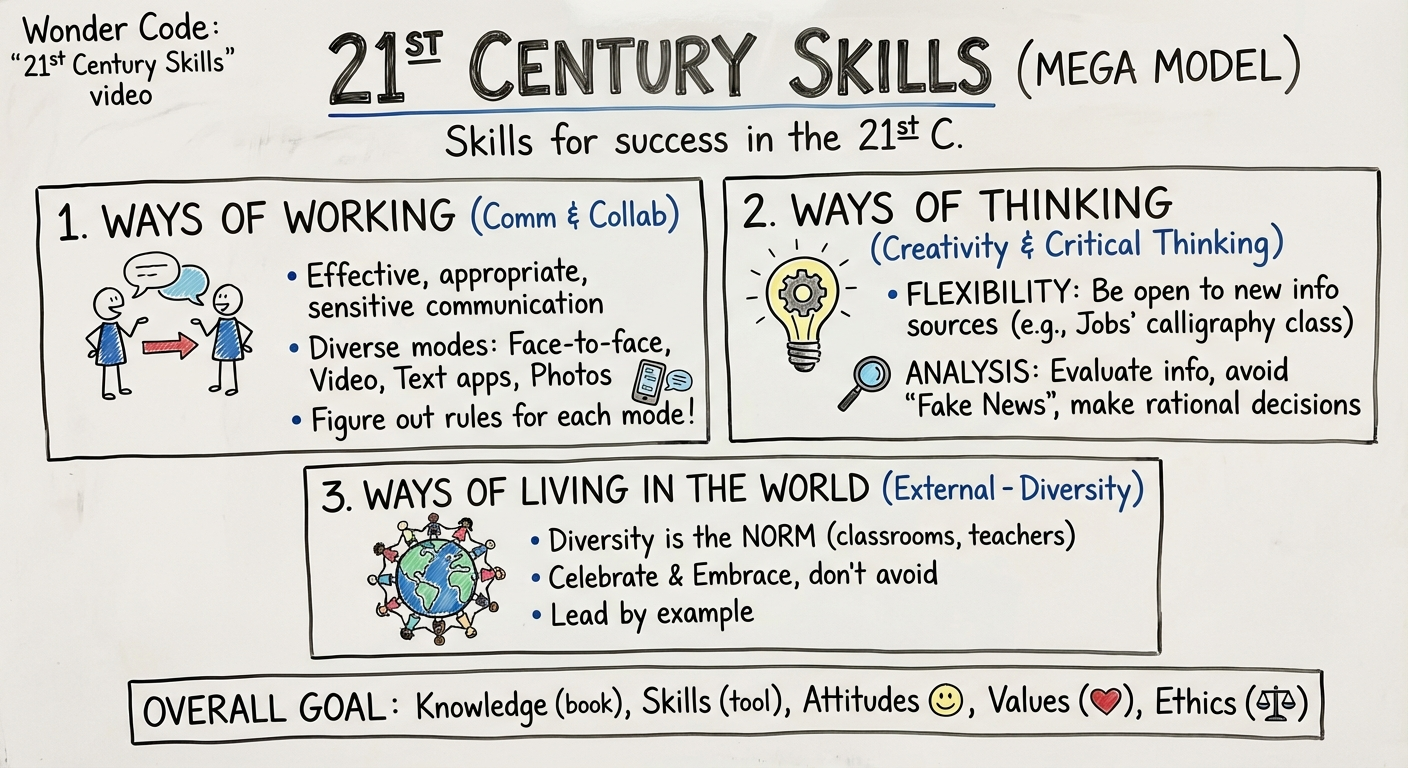 Wonder Code:
“21st Century Skills”
video
21ST CENTURY SKILLS (MEGA MODEL)
Skills for success in the 21st C.
1. WAYS OF WORKING (Comm & Collab)
• Effective, appropriate,
sensitive communication
• Diverse modes: Face-to-face,
Video, Text apps, Photos
• Figure out rules for each mode!
2. WAYS OF THINKING
(Creativity & Critical Thinking)
• FLEXIBILITY: Be open to new info
sources (e.g., Jobs’ calligraphy class)
ANALYSIS: Evaluate info, avoid
“Fake News”, make rational decisions
3. WAYS OF LIVING IN THE WORLD (External - Diversity)
• Diversity is the NORM (classrooms, teachers)
• Celebrate & Embrace, don't avoid
• Lead by example
OVERALL GOAL: Knowledge (book), Skills (tool), Attitudes, Values, Ethics